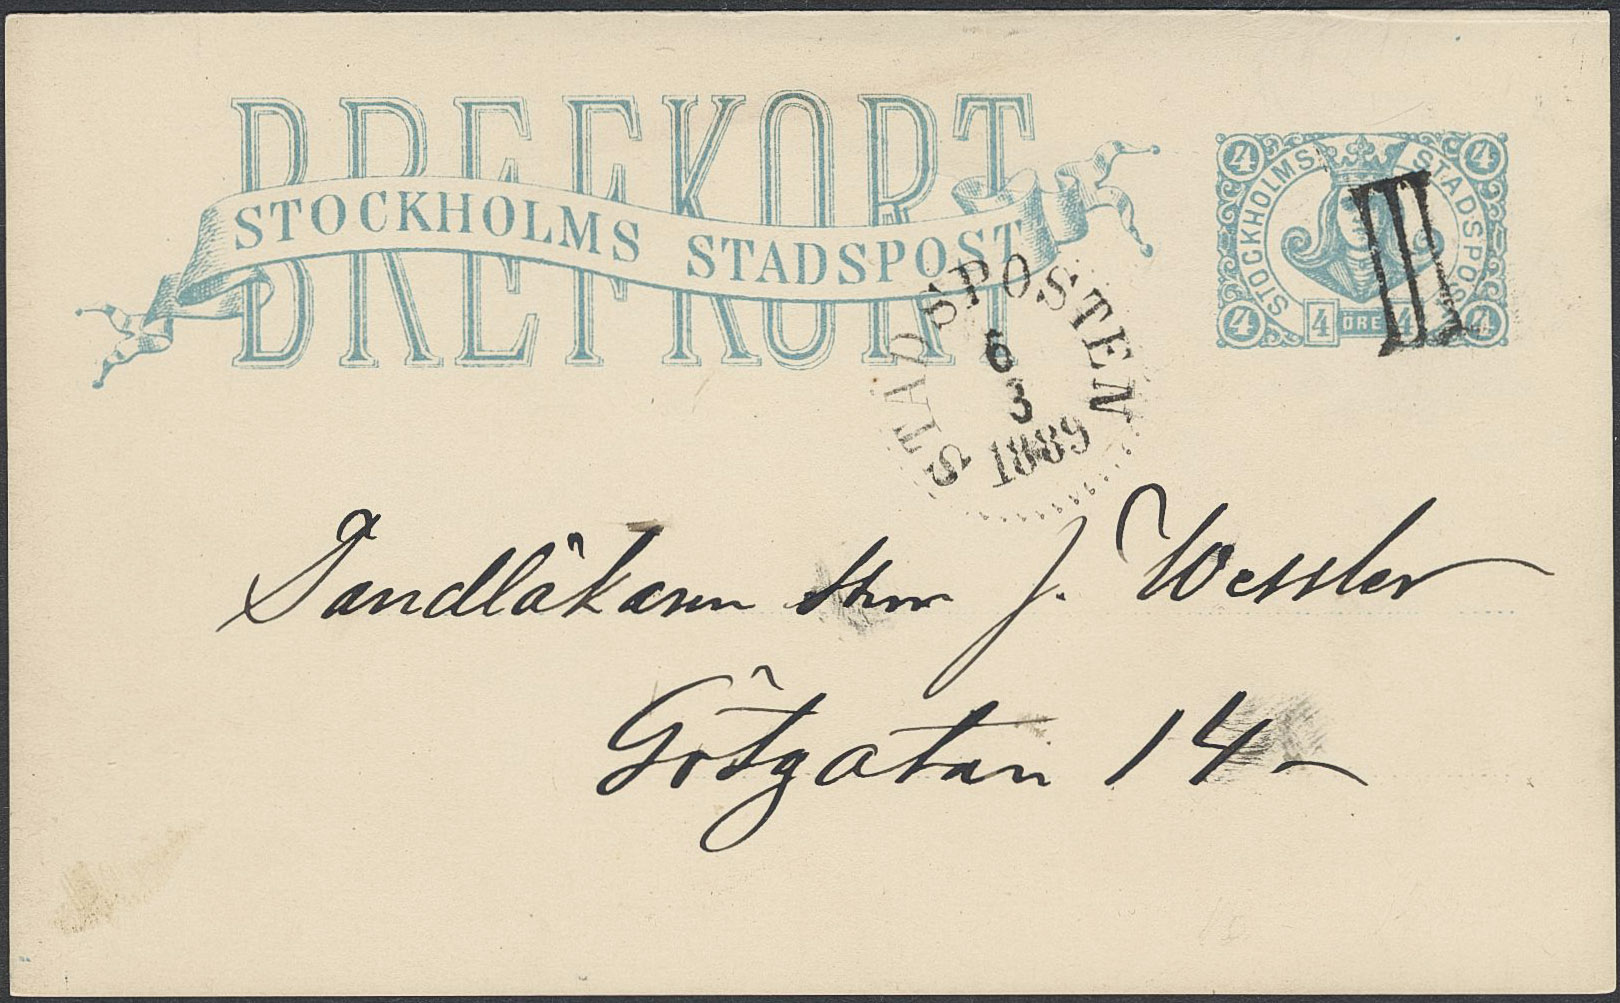 BREFKORT
STOCKHOLMS STADSPOST
4 4
STOCKHOLMS STADSPOST
4 4 ÖRE 4 4
III
STADSPOSTEN
6
3
1889
Tandläkaren Herr J. Wessler
Götgatan 14